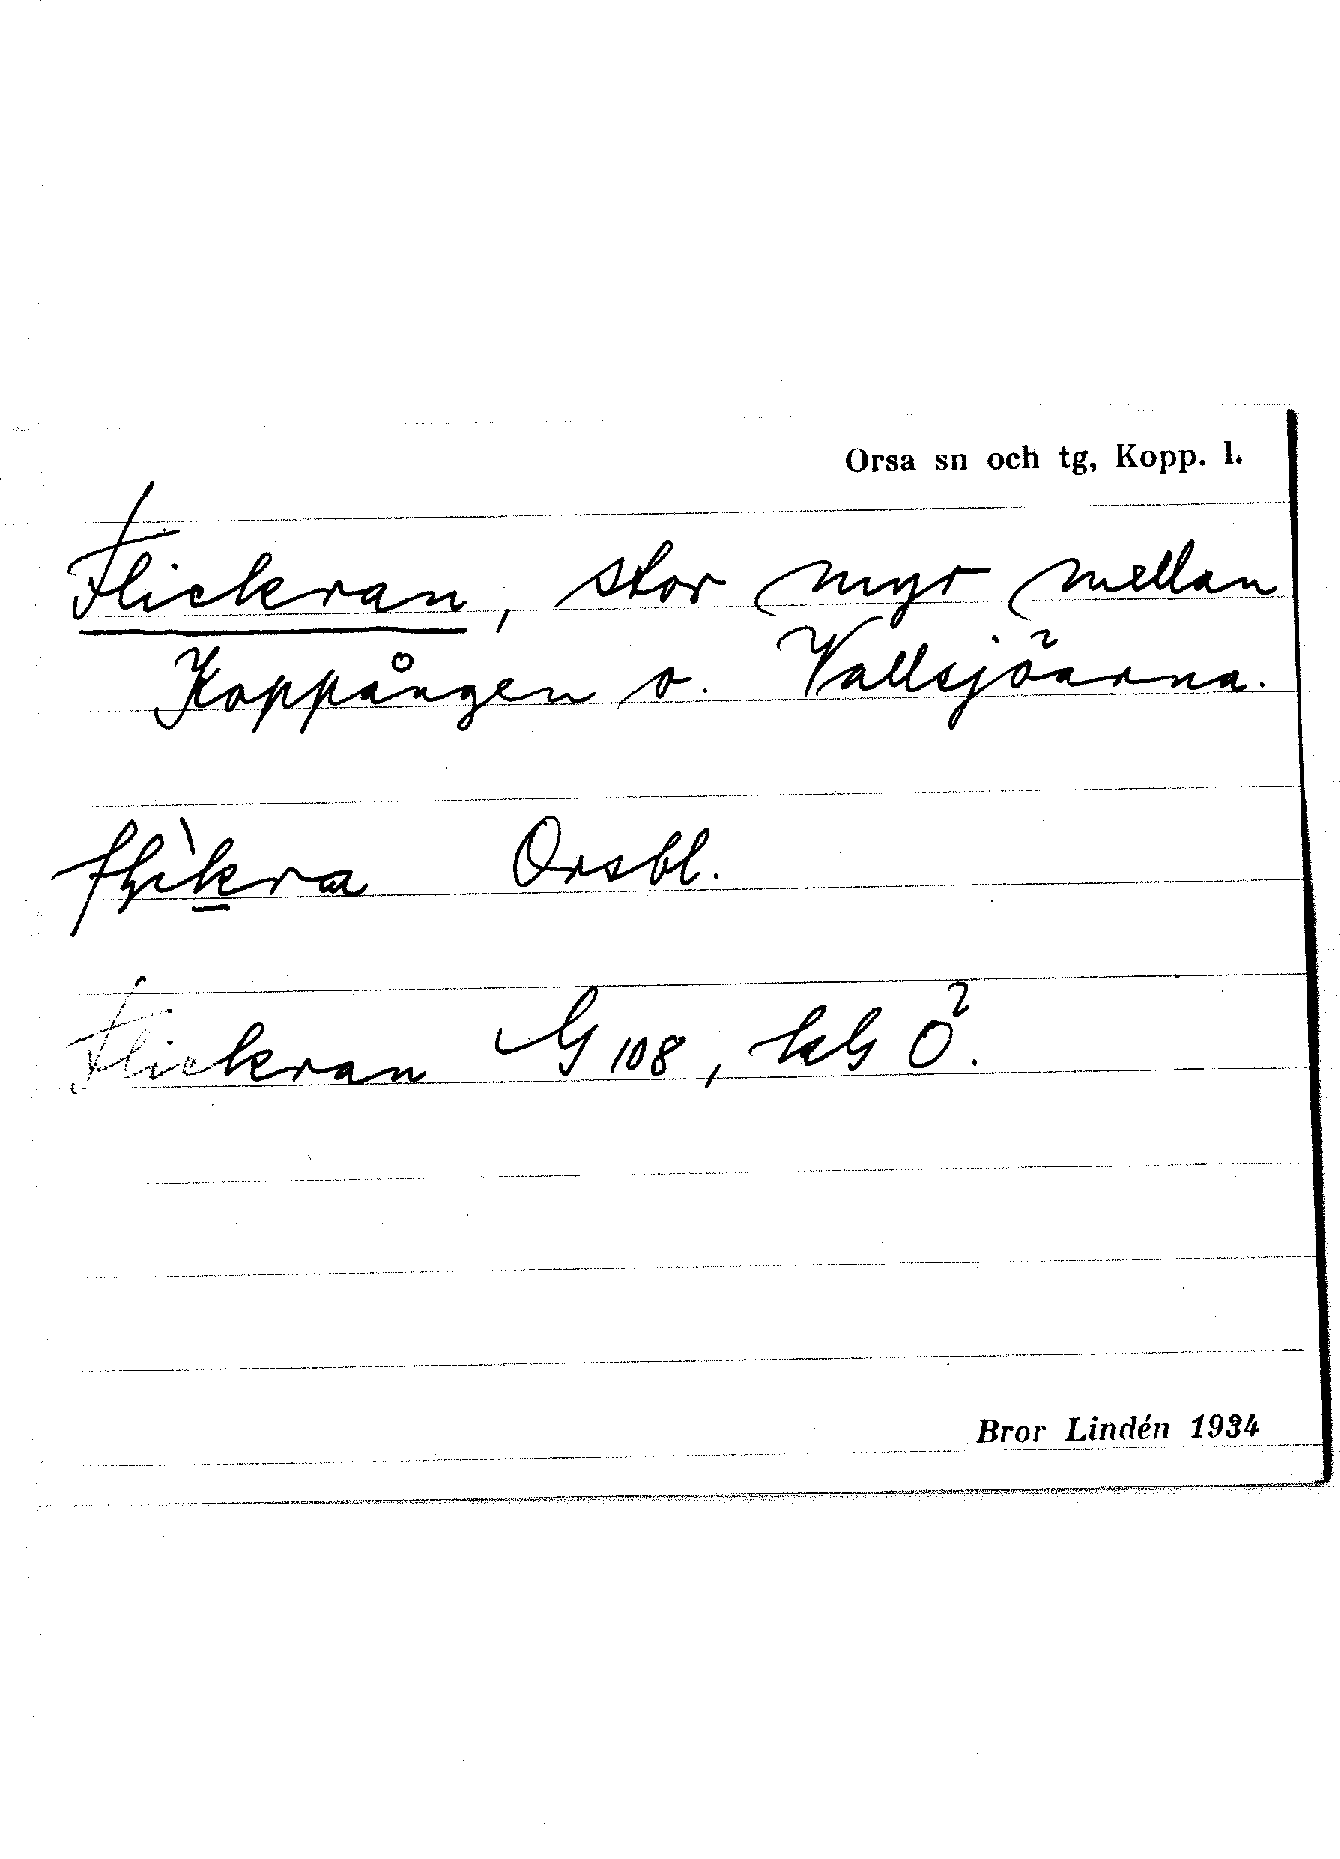 Orsa sn och tg, Kopp. l.
Flickran, stor myr mellan
Koppången o. Vallsjöarna.
Orsbl.
Flickran G 108, kbl Ö.
Bror Lindén 1934